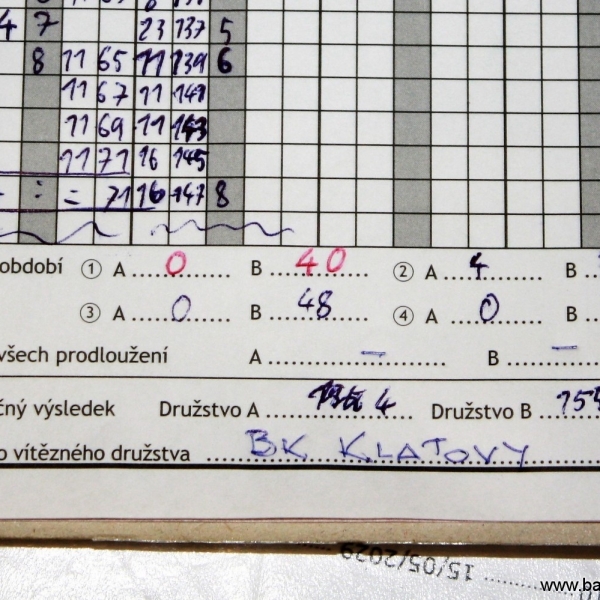 4 7 23 137 5
8 11 65 11 139 6
11 67 11 141
11 69 11 143
11 71 16 145
- : = 71 16 147 8
období ① A ..... 0 ..... B ..... 40 ..... ② A ..... 4 ..... B ...
③ A ..... 0 ..... B ..... 48 ..... ④ A ..... 0 ..... B ...
všech prodloužení A ..... – ..... B ..... –
čný výsledek Družstvo A ..... 4 ..... Družstvo B ...
o vítězného družstva ..... BK KLATOVY .....
15/05/2029
www.ba